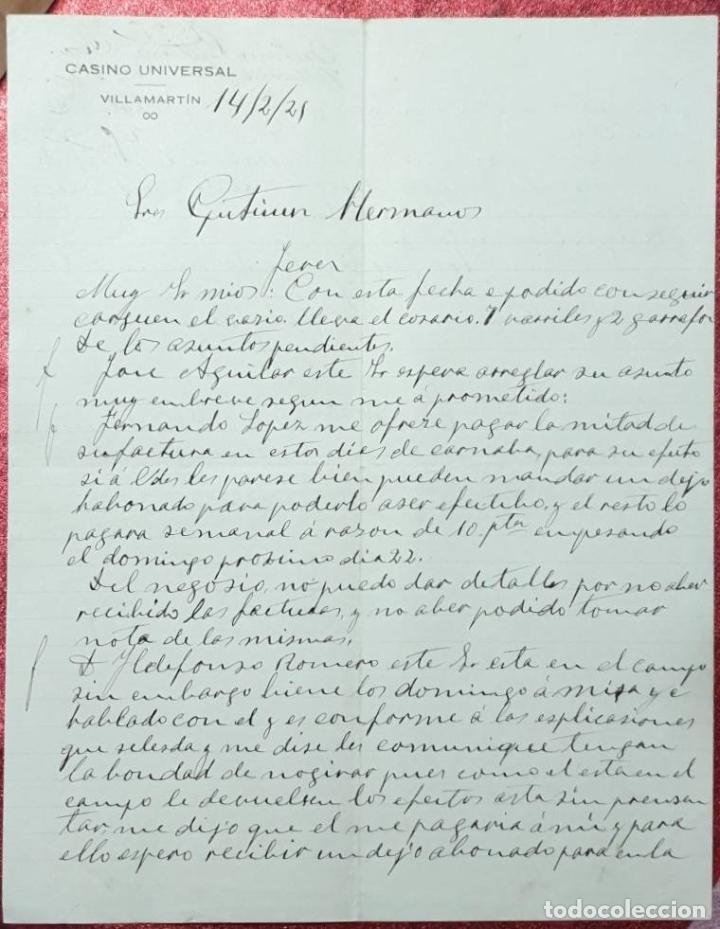 CASINO UNIVERSAL
VILLAMARTÍN
14/2/25
Sres Gutierrez Hermanos
Jerez
Muy Sr mios: Con esta fecha e podido conseguir
carguen el vazio. lleva el cosario. 7 varriles y 2 garrafon
De los asuntos pendientes.
José Aguilar este Sr espera arreglar su asunto
muy en breve segun me á prometido:
Fernando Lopez me ofreze pagar la mitad de
su factura en estos dias de carnaba, para su efecto
si á Udes les parese bien pueden mandar un dejo
habonado para poderlo aser efectibo, y el resto lo
pagara semanal á razon de 10. ptas enpesando
el domingo prosimo dia 22.
Del negosio, no puedo dar detalles por no aber
recibido las facturas, y no aber podido tomar
nota de las mismas.
D Yldefonso Romero este Sr esta en el campo
sin embargo biene los domingo á misa y e
hablado con el y es conforme á las esplicasiones
que se les da y me dise les comunique tengan
la bondad de no girar pues como el esta en el
campo le devuelben los efectos asta sin presen
tar, me dijo que el me pagaria á mi y para
ello espero recibir un dejo abonado para en la
todocoleccion.net